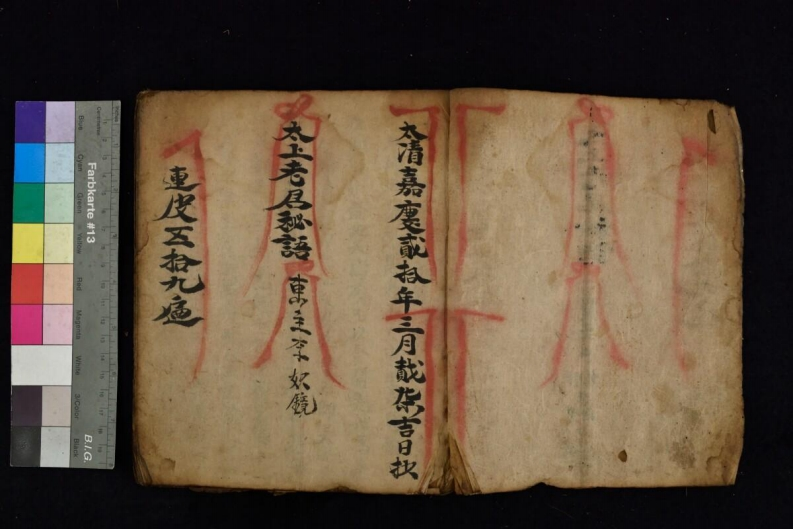 太清嘉慶貳拾年三月貳柒吉日抄
太上老君秘語 東主李 鏡
連皮五拾九
Farbkarte #13
B.I.G.
Blue
Cyan
Green
Yellow
Red
Magenta
White
3/Color
Black